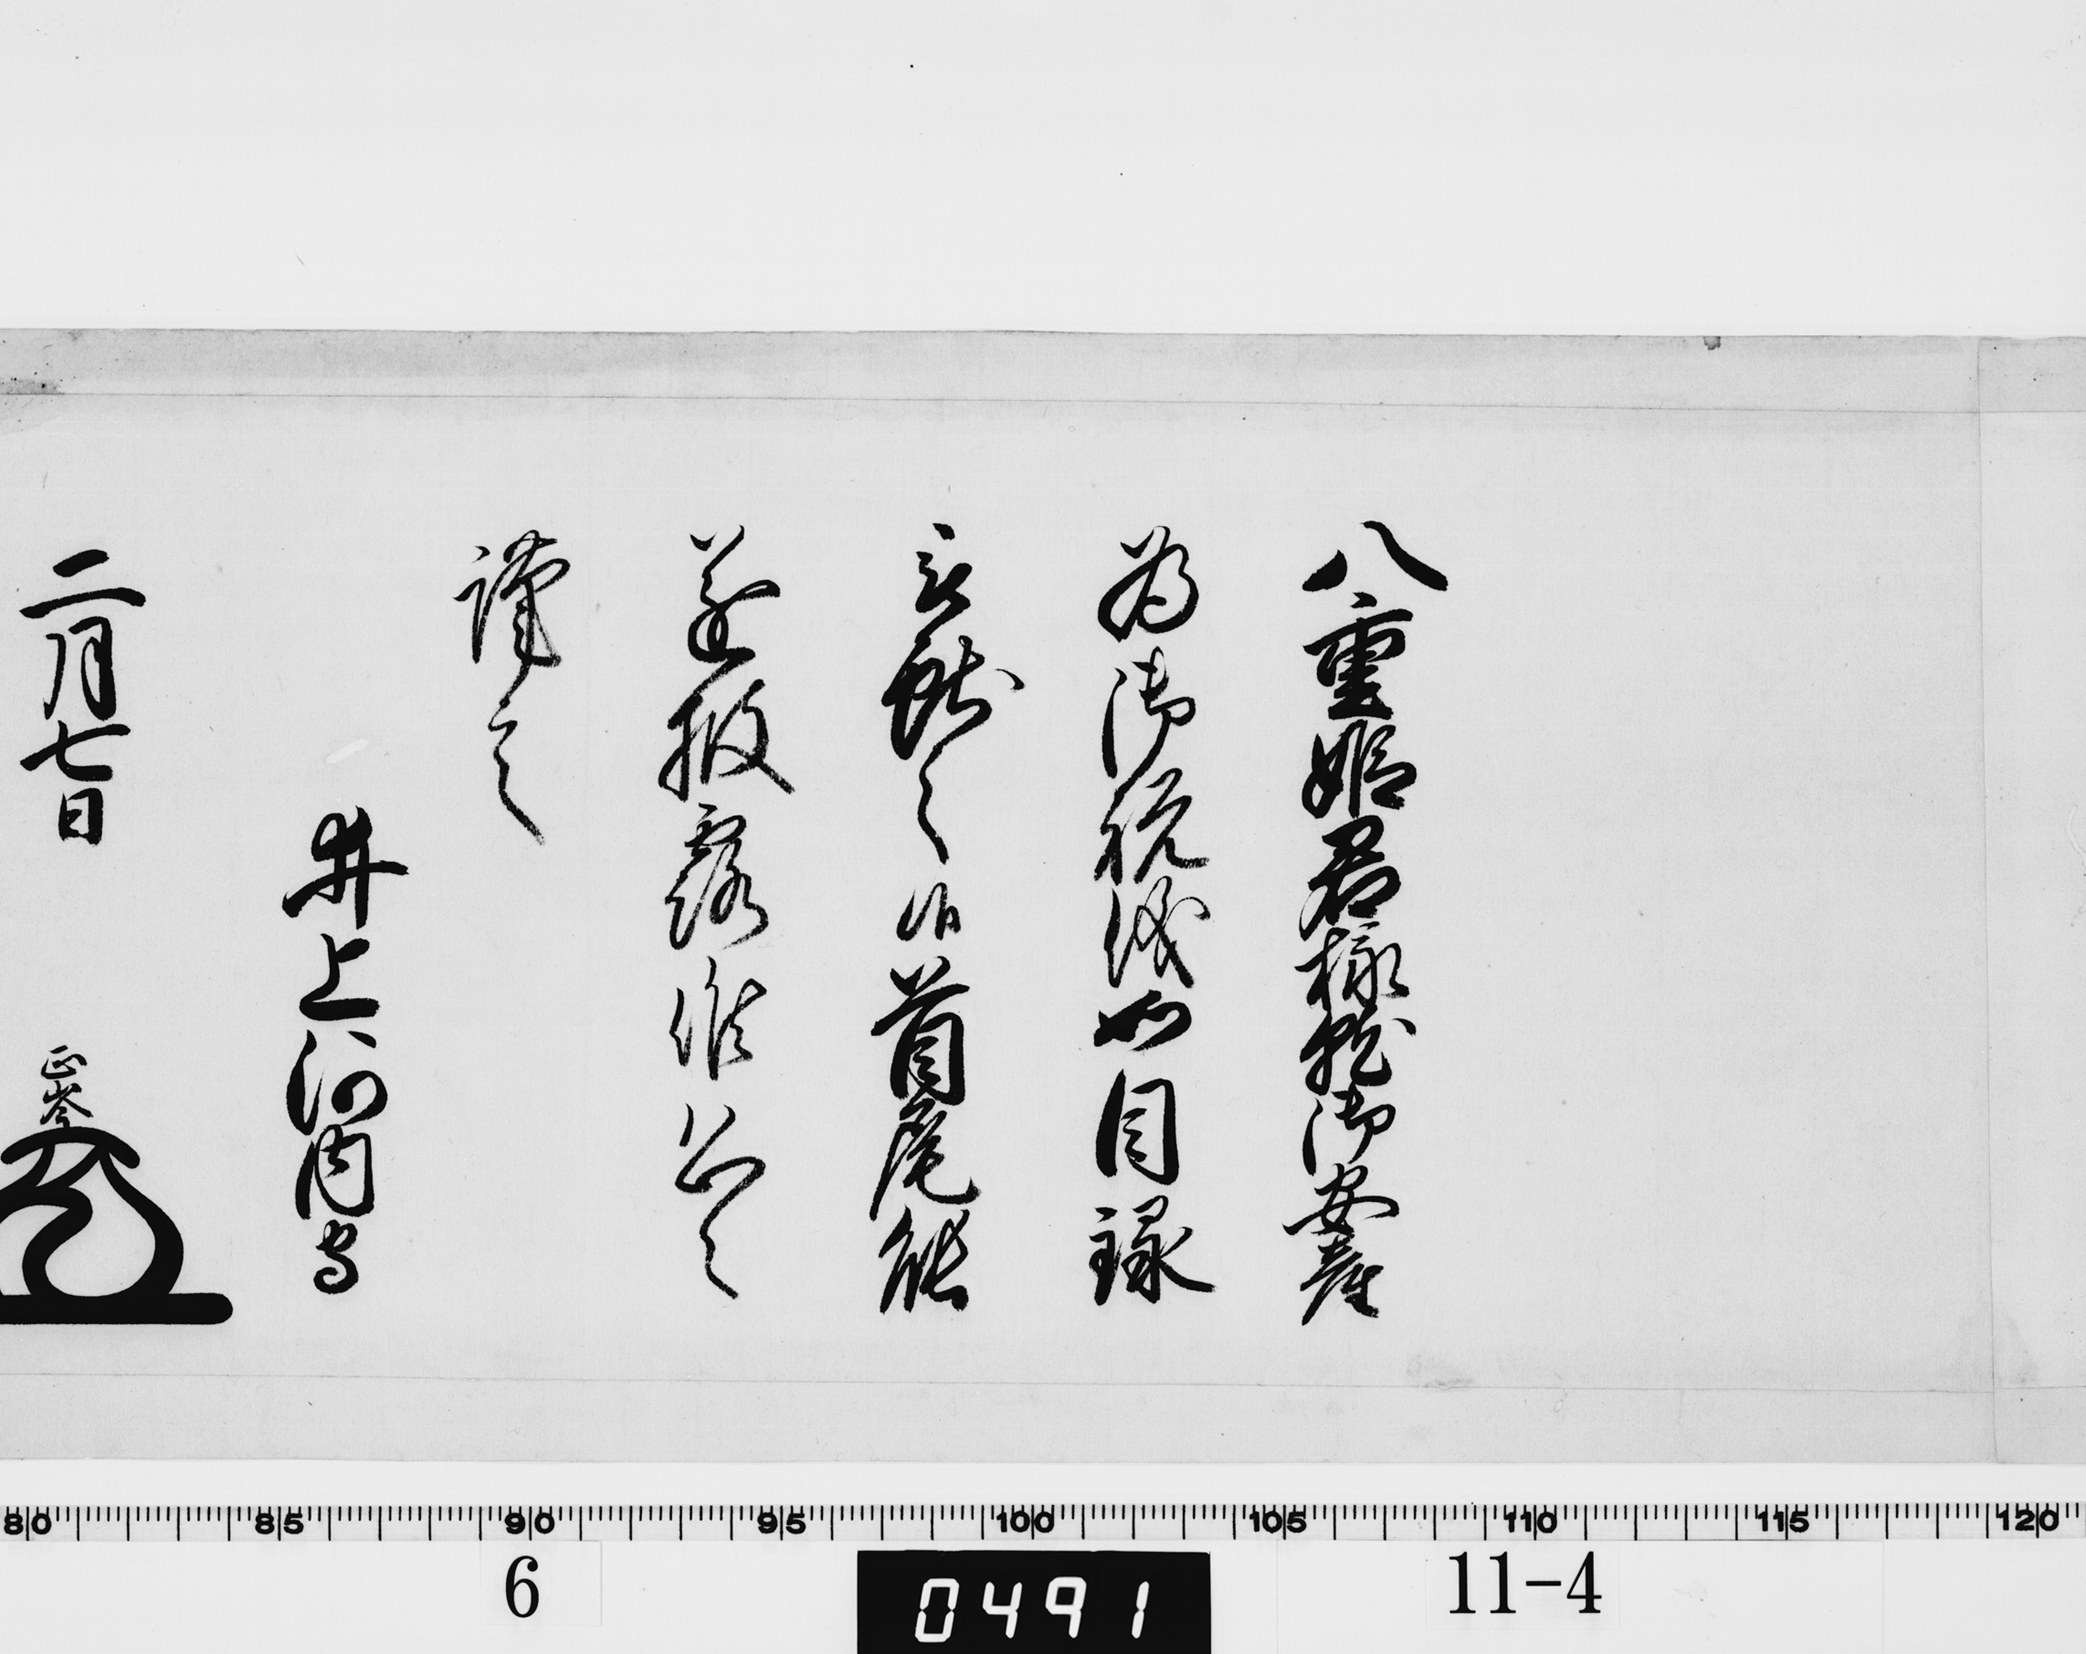 八重姫君様就御安産
為御祝儀如目録
被献之候首尾能
遂披露候恐々
謹言
井上河内守
二月七日 正岑
80 85 90 95 100 105 110 115 120
6 0491 11-4